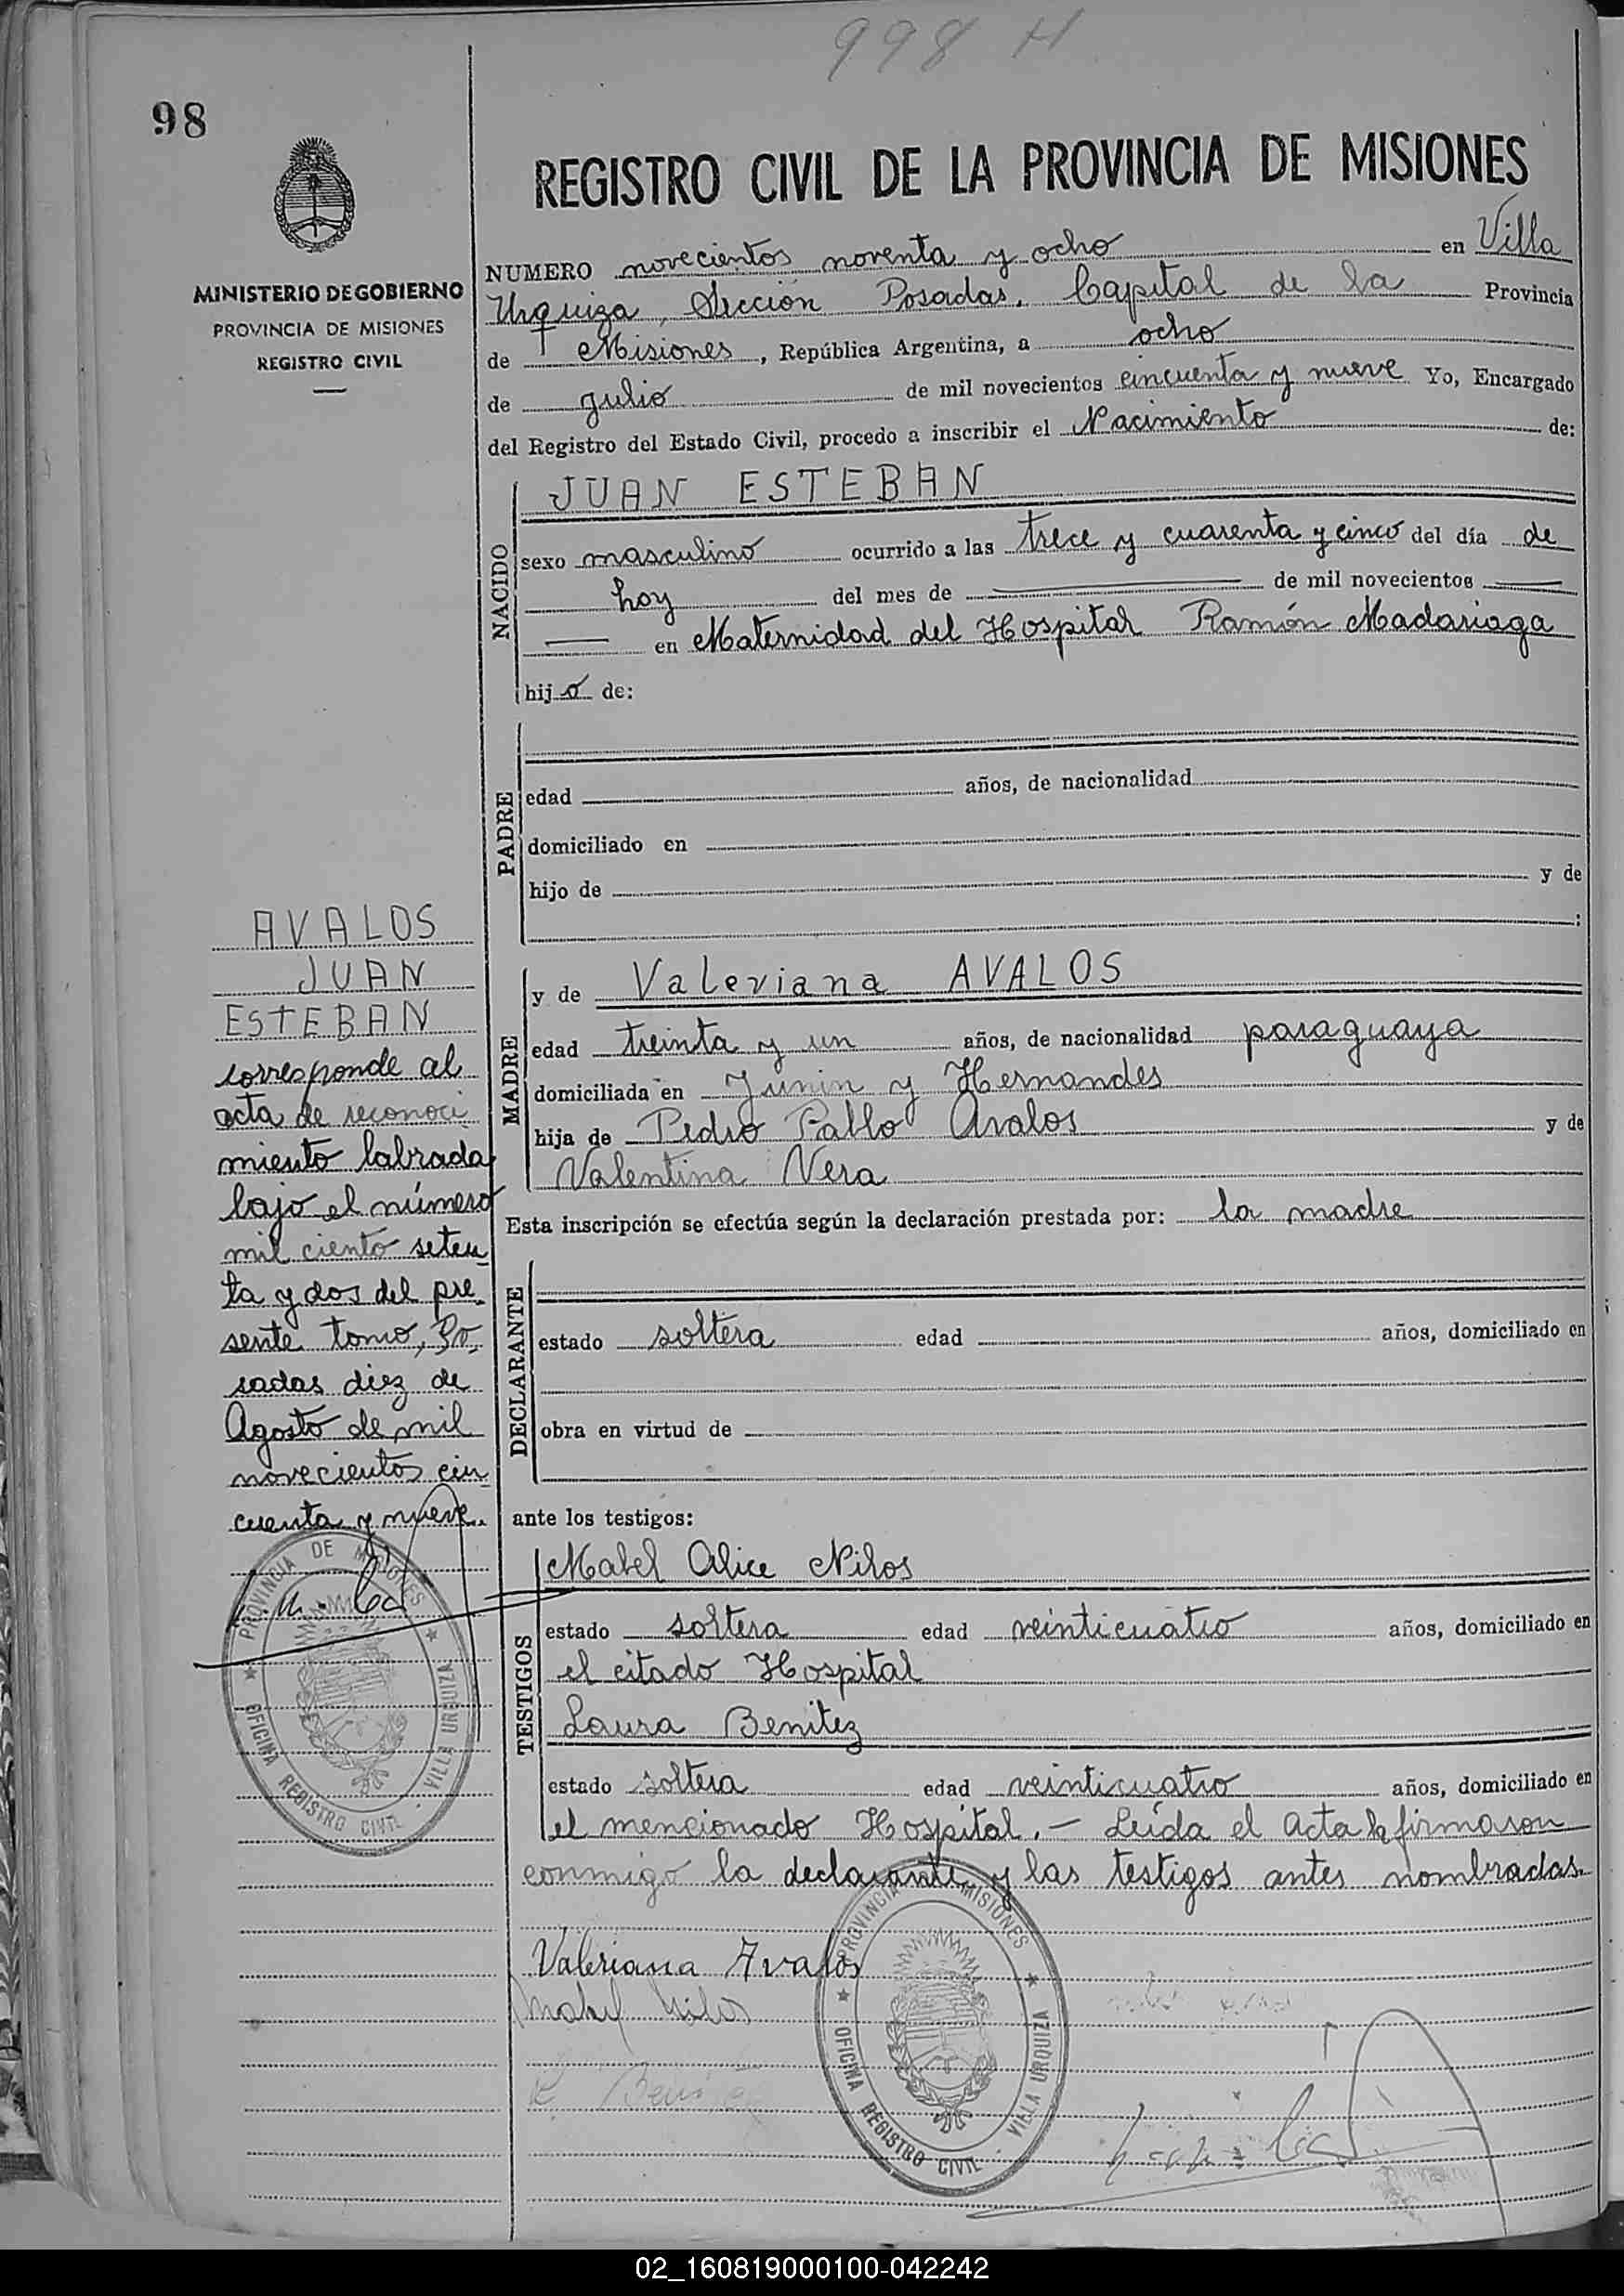 998 H
98
REGISTRO CIVIL DE LA PROVINCIA DE MISIONES
MINISTERIO DE GOBIERNO
PROVINCIA DE MISIONES
REGISTRO CIVIL
NUMERO novecientos noventa y ocho en Villa
Urquiza, Sección Posadas, Capital de la Provincia
de Misiones, República Argentina, a ocho
de julio de mil novecientos cincuenta y nueve Yo, Encargado
del Registro del Estado Civil, procedo a inscribir el Nacimiento de:
NACIDO
JUAN ESTEBAN
sexo masculino ocurrido a las trece y cuarenta y cinco del día de
hoy del mes de de mil novecientos
en Maternidad del Hospital Ramón Madariaga
hijo de:
PADRE
edad años, de nacionalidad
domiciliado en
hijo de y de
;
MADRE
y de Valeriana AVALOS
edad treinta y un años, de nacionalidad paraguaya
domiciliada en Junin y Hernandes
hija de Pedro Pablo Avalos y de
Valentina Vera
Esta inscripción se efectúa según la declaración prestada por: la madre
DECLARANTE
estado soltera edad años, domiciliado en
obra en virtud de
ante los testigos:
TESTIGOS
Mabel Alice Nilos
estado soltera edad veinticuatro años, domiciliado en
el citado Hospital
Laura Benitez
estado soltera edad veinticuatro años, domiciliado en
el mencionado Hospital. — Leída el acta la firmaron
conmigo la declarante y las testigos antes nombradas.
Valeriana Avalos
Mabel Nilos
PROVINCIA DE MISIONES
OFICINA REGISTRO CIVIL - VILLA URQUIZA
AVALOS
JUAN
ESTEBAN
corresponde al
acta de reconoci
miento labrada
bajo el número
mil ciento seten
ta y dos del pre
sente tomo, Po
sadas diez de
Agosto de mil
novecientos cin
cuenta y nueve.
PROVINCIA DE MISIONES
OFICINA REGISTRO CIVIL - VILLA URQUIZA
02_160819000100-042242